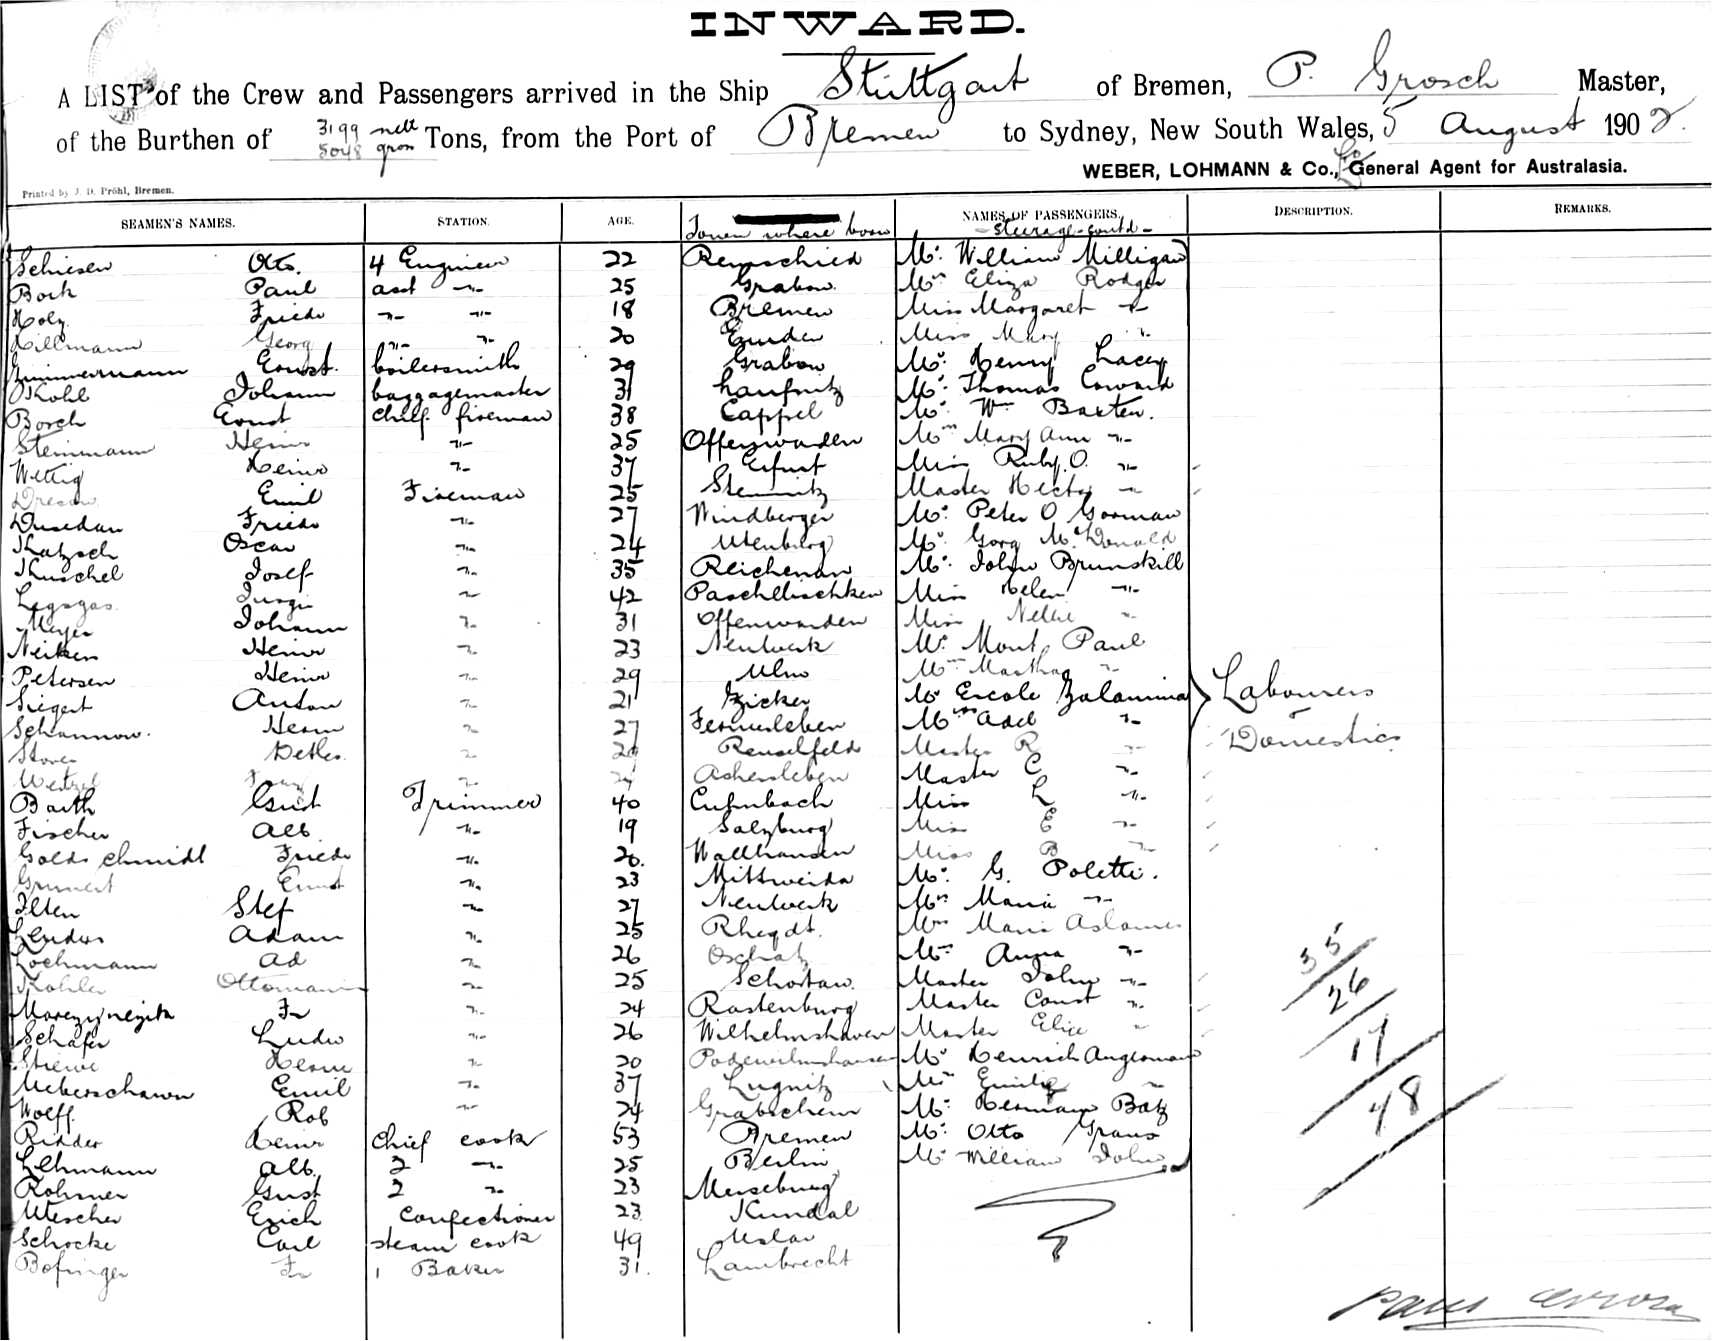 INWARD.
A LIST of the Crew and Passengers arrived in the Ship Stuttgart of Bremen, P. Grosch Master,
of the Burthen of 3199 nett 5048 gross Tons, from the Port of Bremen to Sydney, New South Wales, 5 August 1902.
WEBER, LOHMANN & Co., General Agent for Australasia.
Printed by J. D. Pröhl, Bremen.
SEAMEN'S NAMES. STATION. AGE. Town where born NAMES OF PASSENGERS. DESCRIPTION. REMARKS.
Steerage contd
Schiesen Otto. 4 Engineer 22 Remschied Mr. William Milligan
Bock Paul asst -"- 25 Grabow. Mrs Eliza Rodger
Holz Friedr -"- -"- 18 Bremen Miss Margaret -"-
Hillmann Georg -"- -"- 20 Emden Miss Mary -"-
Zimmermann Ernst. boilersmith 29 Grabow Mr. Henry Lacey
Kohl Johann baggagemaster 31 Mr. Thomas Coward
Borch Ernst chief fireman 38 Cappel Mr. Wm Baxter.
Steinmann Heinr -"- 25 Offenwarden Mrs Mary Ann -"-
Wettig Heinr -"- 37 Erfurt Miss Ruby O. -"-
Emil Fireman 25 Master Hector -"-
Dusedau Friedr -"- 27 Windberger Mr. Peter O Gorman
Katzsch Oscar -"- 24 Utenburg Mr. Gorg McDonald
Kuschel Josef -"- 35 Reichenau Mr. John Brunskill
42 Miss Helen -"-
Meyer Johann -"- 31 Offenwarden Miss Nellie -"-
Neitzen Heinr -"- 23 Neuwerk Mr. Mont. Paul
Petersen Heinr -"- 29 Ulm Mrs Martha -"-
Siegert Anton -"- 21 Zicker Mr Ercole Zalamina Labourers
Schannow. Herm -"- 27 Fermersleben Mrs Adel -"-
Storer Detles -"- 29 Renselfeld Master R -"- Domestics
Wetzel Franz -"- Ashersleben Master C -"-
Barth Gust Trimmer 40 Culmbach Miss L -"-
Fischer Alb. -"- 19 Salzburg Miss E -"-
Goldschmidt Friedr -"- 20. Wallhausen Miss B -"-
Grunert Ernst -"- 23 Mittweida Mr. G. Poletti.
Ilten Stef -"- 27 Neuwerk Mrs Maria -"-
Adam -"- 25 Rheydt. Mrs Maria
Lochmann Ad -"- 26 Oschatz Mrs Anna -"-
Kohler Ottomann -"- 25 Schortau. Master John -"- 35
Fr -"- 24 Rastenburg Master Const -"- 26
Schäfer Ludw -"- 26 Wilhelmshaven Master Elice -"-
Stiewe Herm -"- 20 Mr. Henrich Angerman 17
Ueberschawn Emil -"- 37 Lugnitz Mrs Emilie -"-
Wolff. Rob -"- 24 Grabschen Mr. Herman Batz 48
Ridder Heinr Chief cook 53 Bremen Mr. Otto Graus
Lehmann Alb. 2 -"- 25 Berlin Mr. William John
Rohmer Gust 2 -"- 23 Merseburg
Utescher Erich Confectioner 23 Kundal
Schocke Carl steam cook 49 Uslar
Bofinger Fr 1 Baker 31. Lambrecht